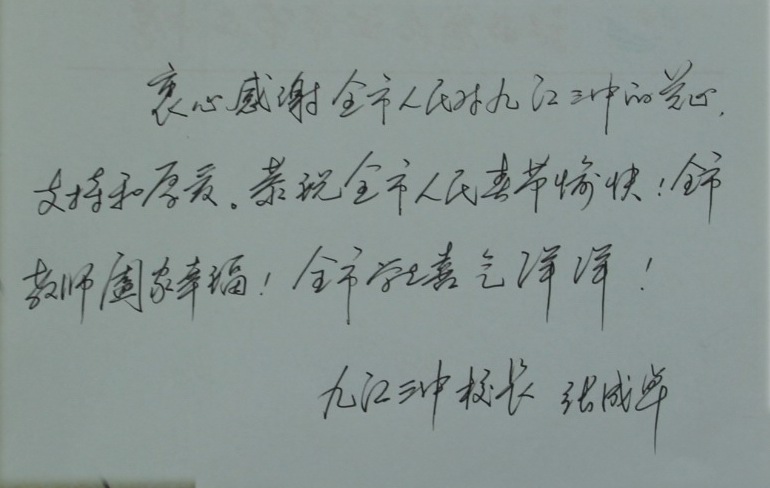 衷心感谢全市人民对九江三中的关心,
支持和厚爱。恭祝全市人民春节愉快!全市
教师阖家幸福!全市学生喜气洋洋!
九江三中校长 张成单